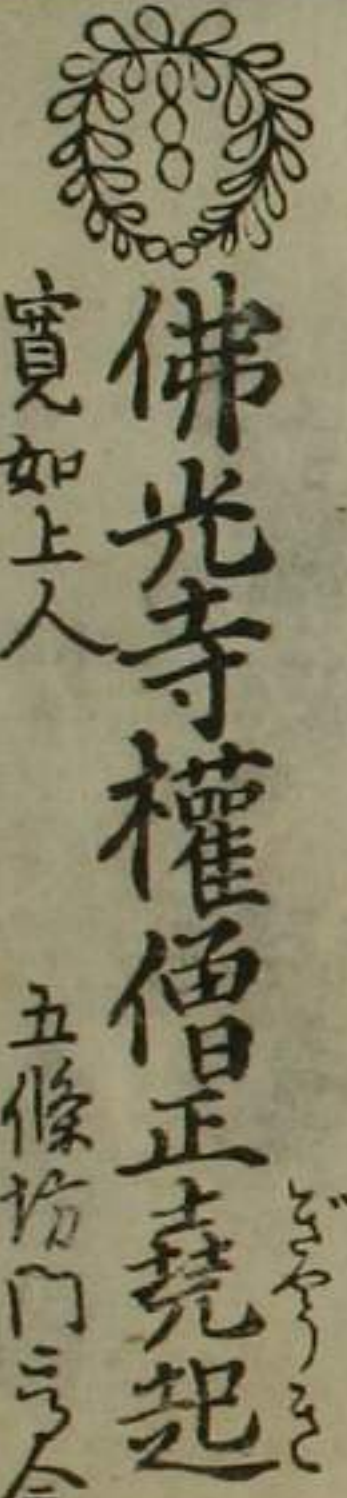 佛光寺權僧正堯起
ぎやうき
寛如上人
五條坊門